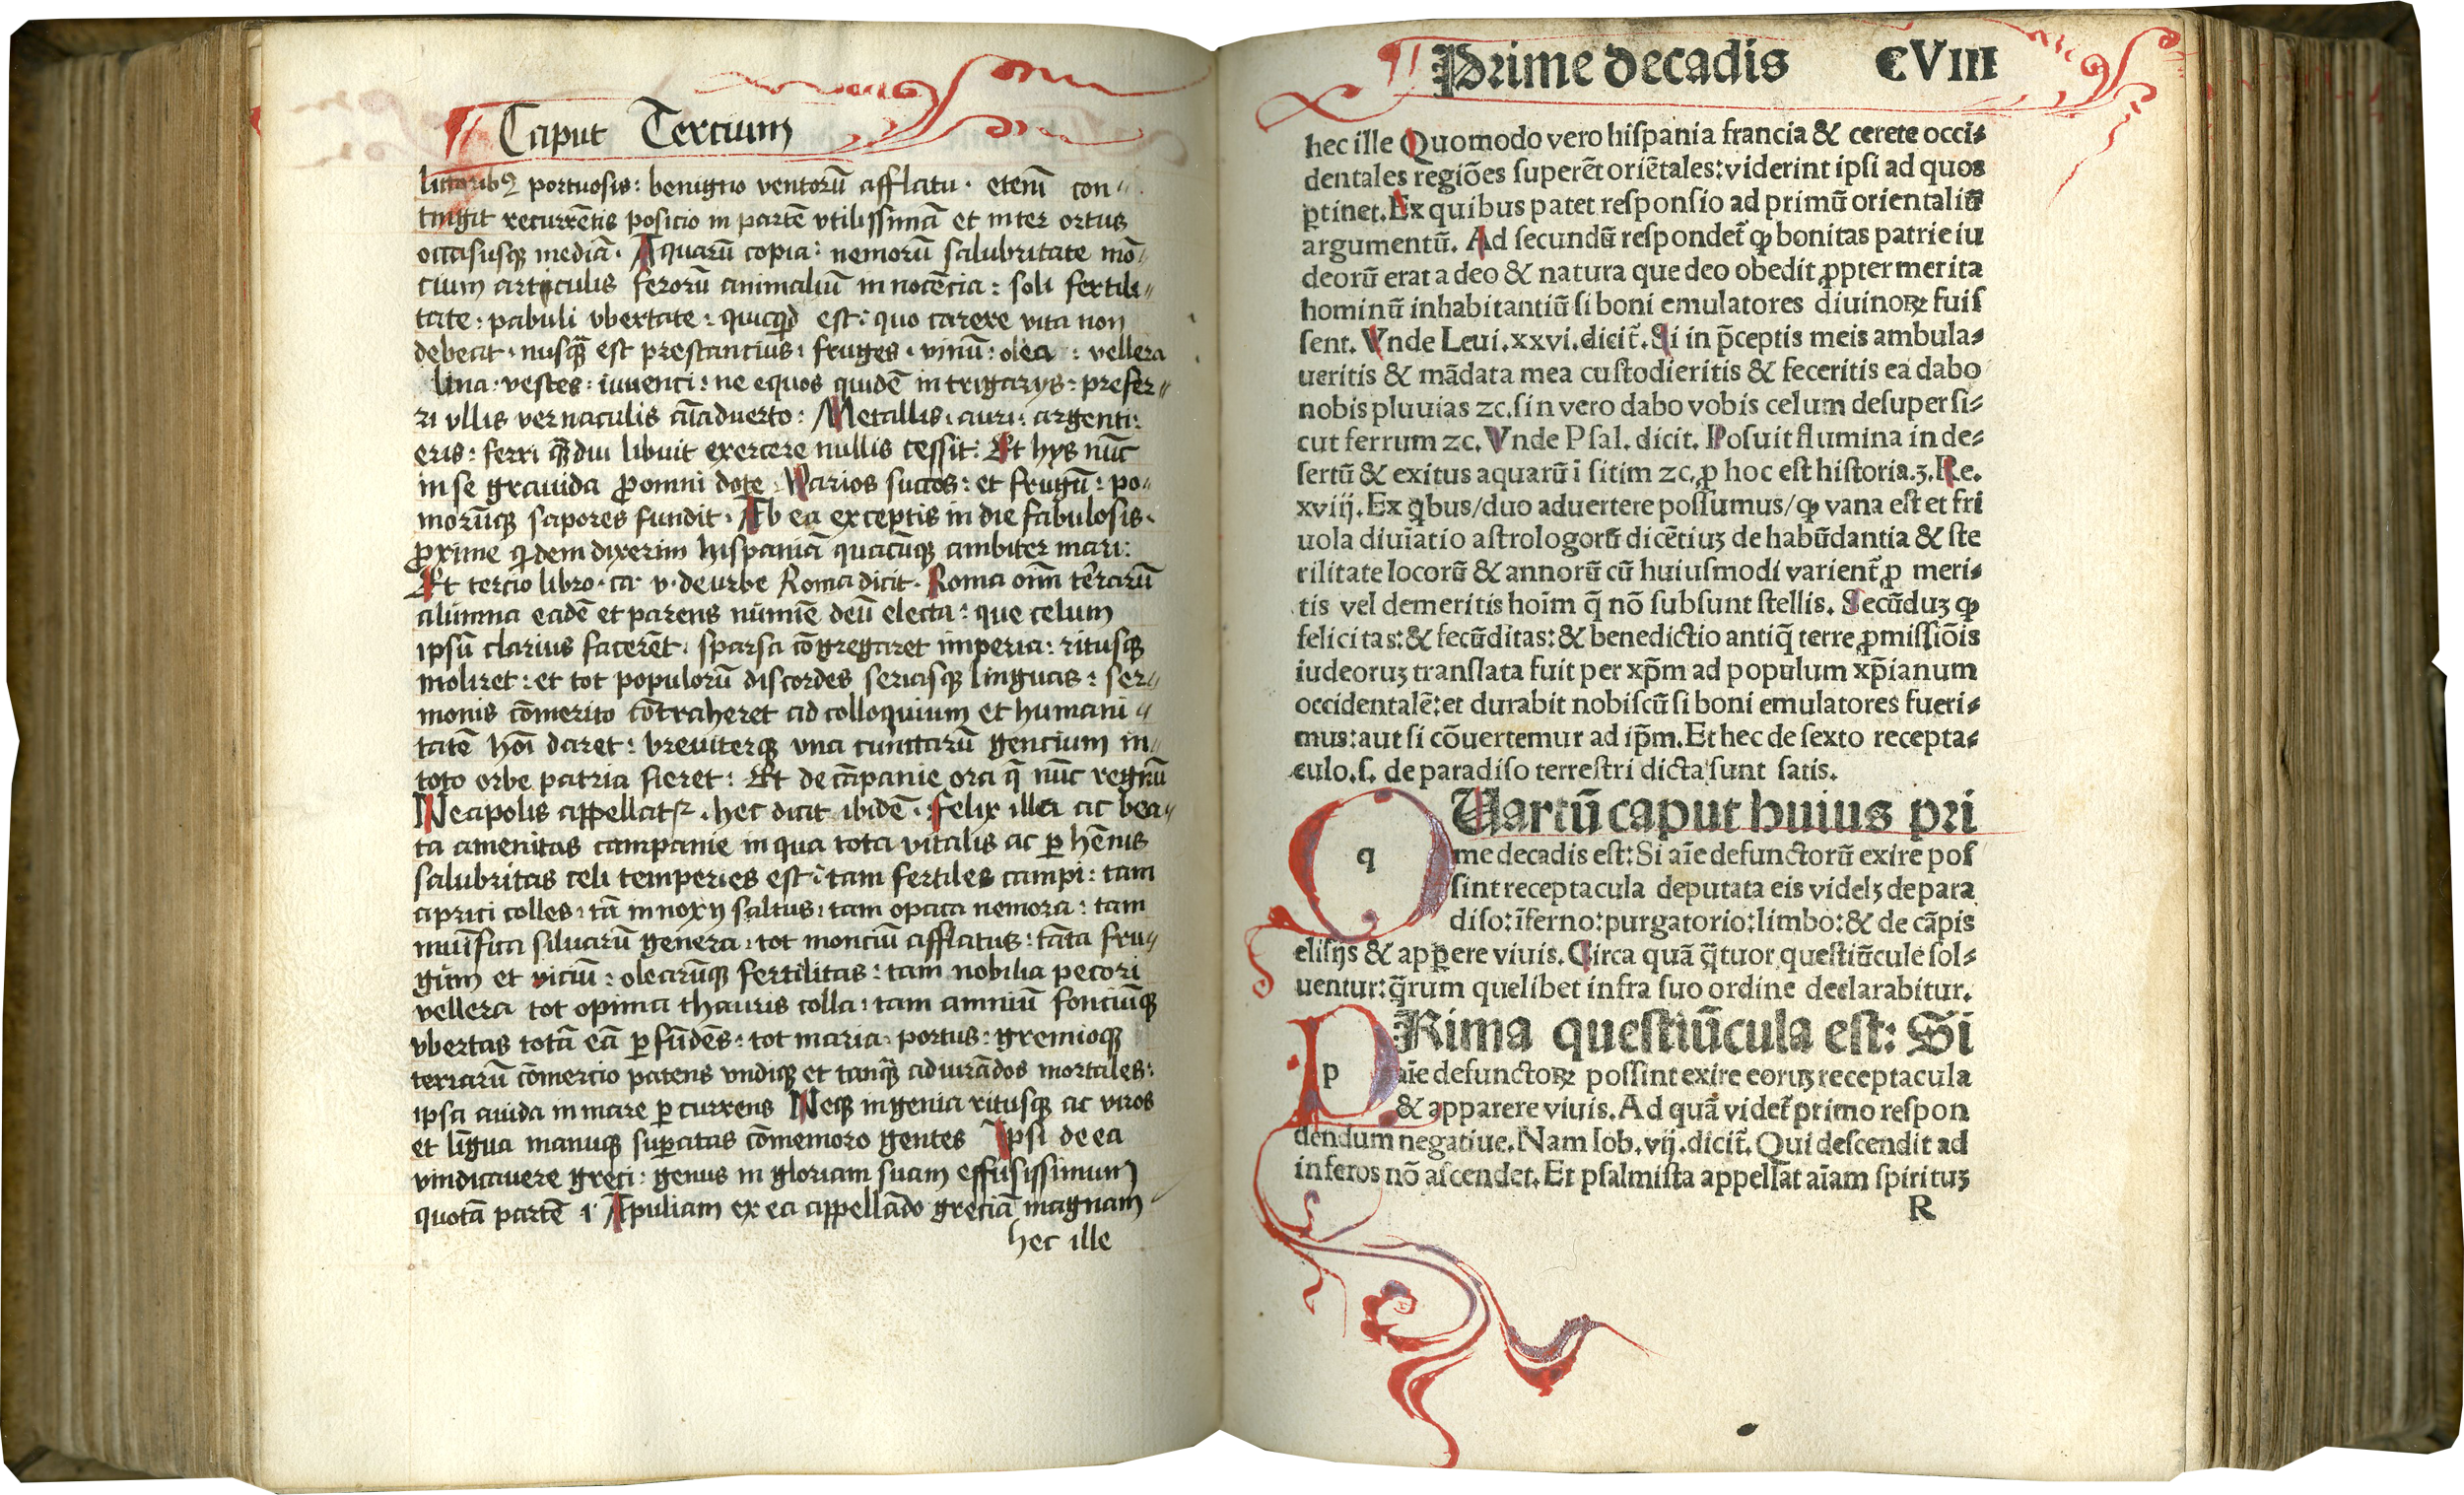 Caput Tertium
littoribꝰ portuosis: benigno ventorū afflatu. etenī con⸗
tingit recurrētis posicio in partē vtilissimā et inter ortus
occasusqꝫ mediā. Aquarū copia: nemorū salubritate mō⸗
cium articulis ferorū animaliū innocēcia: soli fertili⸗
tate: pabuli vbertate: quicqͥd est: quo carere vita non
debeat. nusqᷓ est prestancius: fruges. vinū: olea: vellera
lina: vestes: iuuenci: ne equos quidē in trigarijs: prefer⸗
ri vllis vernaculis aīaduerto: Metallis. auri. argenti:
eris: ferri qᷓdiu libuit exercere nullis cessit: Et hys nūc
in se grauida ꝓomni dote Varios succos: et frugū: po⸗
morūqꝫ sapores fundit. Ab ea exceptis indie fabulosis.
ꝓxime qͥdem dixerim hispaniā quacūqꝫ ambitur mari:
Et tercio libro. ca. v. de urbe Roma dicit. Roma oīm terrarū
alumna eadē et parens numīe deū electa: que celum
ipsū clarius facerēt. sparsa cōgregaret imperia: ritusqꝫ
moliret: et tot populorū discordes feriasqꝫ linguas: ser⸗
monis cōmercio cōtraheret ad colloquium et humani⸗
tatē hoī daret: breuiterqꝫ vna cunctarū gencium in⸗
toto orbe patria fieret: Et de cāpanie ora q̄ nūc regnū
Neapolis appellatᷓ. hec dicit ibidē. Felix illa ac bea⸗
ta amenitas campanie in qua tota vitalis ac ꝑhēnis
salubritas celi temperies est: tam fertiles campi: tam
aprici colles: tā innoxij saltus: tam opaca nemora: tam
munīfica siluarū genera: tot monciū afflatus: tāta fru⸗
gum et viciū: olearūqꝫ fertilitas: tam nobilia pecori
vellera tot opima thauris colla: tam amniū fonciūqꝫ
vbertas totā eā ꝑfūdēs: tot maria. portus: gremioqꝫ
terrarū cōmercio patens vndiqꝫ et tanqᷓ adiuuādos mortales:
ipsa auida in mare ꝑcurrens Neqꝫ ingenia ritusqꝫ ac viros
et līgua manuqꝫ suꝑatas cōmemoro gentes Ipsi de ea
iudicauere greci: genus in gloriam suam effusissimum
quotā partē ī Apuliam ex ea appellādo greciā magnam
hec ille
Prime decadis CVIII
hec ille Quomodo vero hiſpania francia & cerete occi⸗
dentales regiōes ſuperēt oriētales: viderint ipſi ad quos
ꝑtinet. Ex quibus patet reſponſio ad primū orientaliū
argumentū. Ad ſecundū reſpondet̄ ꝙ bonitas patrie iu
deorū erat a deo & natura que deo obedit ꝓpter merita
hominū inhabitantiū ſi boni emulatores diuinoꝝ fuiſ
ſent. Vnde Leui. xxvi. dicit̄. Si in p̄ceptis meis ambula⸗
ueritis & mādata mea cuſtodieritis & feceritis ea dabo
nobis pluuias ⁊c. ſin vero dabo vobis celum deſuper ſi⸗
cut ferrum ⁊c. Vnde Pſal. dicit. Poſuit flumina in de⸗
ſertū & exitus aquarū ī ſitim ⁊c. ꝓ hoc eſt hiſtoria. 3. Re.
xviij. Ex qͥbus/duo aduertere poſſumus/ꝙ vana eſt et fri
uola diuīatio aſtrologorū dicētiuꝫ de habūdantia & ſte
rilitate locorū & annorū cū huiuſmodi varient̄ ꝓ meri⸗
tis vel demeritis hoīm q̄ nō ſubſunt ſtellis. Secūduꝫ ꝙ
felicitas: & fecūditas: & benedictio antiq̄ terre ꝓmiſſiōis
iudeoruꝫ tranſlata fuit per xp̄m ad populum xp̄ianum
occidentalē: et durabit nobiſcū ſi boni emulatores fueri⸗
mus: aut ſi cōuertemur ad ip̄m. Et hec de ſexto recepta⸗
culo. ſ. de paradiſo terreſtri dicta ſunt ſatis.
q Uartū caput huius pri
me decadis eſt: Si aīe defunctorū exire poſ
ſint receptacula deputata eis videlꝫ de para
diſo: īferno: purgatorio: limbo: & de cāpis
eliſijs & apꝑere viuis. Circa quā q̄tuor queſtiūcule ſol⸗
uentur: q̄rum quelibet infra ſuo ordine declarabitur.
p Rima queſtiūcula eſt: Si
aīe defunctoꝝ poſſint exire eoruꝫ receptacula
& apparere viuis. Ad quā videt̄ primo reſpon
dendum negatiue. Nam Iob. vij. dicit̄. Qui deſcendit ad
inferos nō aſcendet. Et pſalmiſta appellat aīam ſpirituꝫ
R